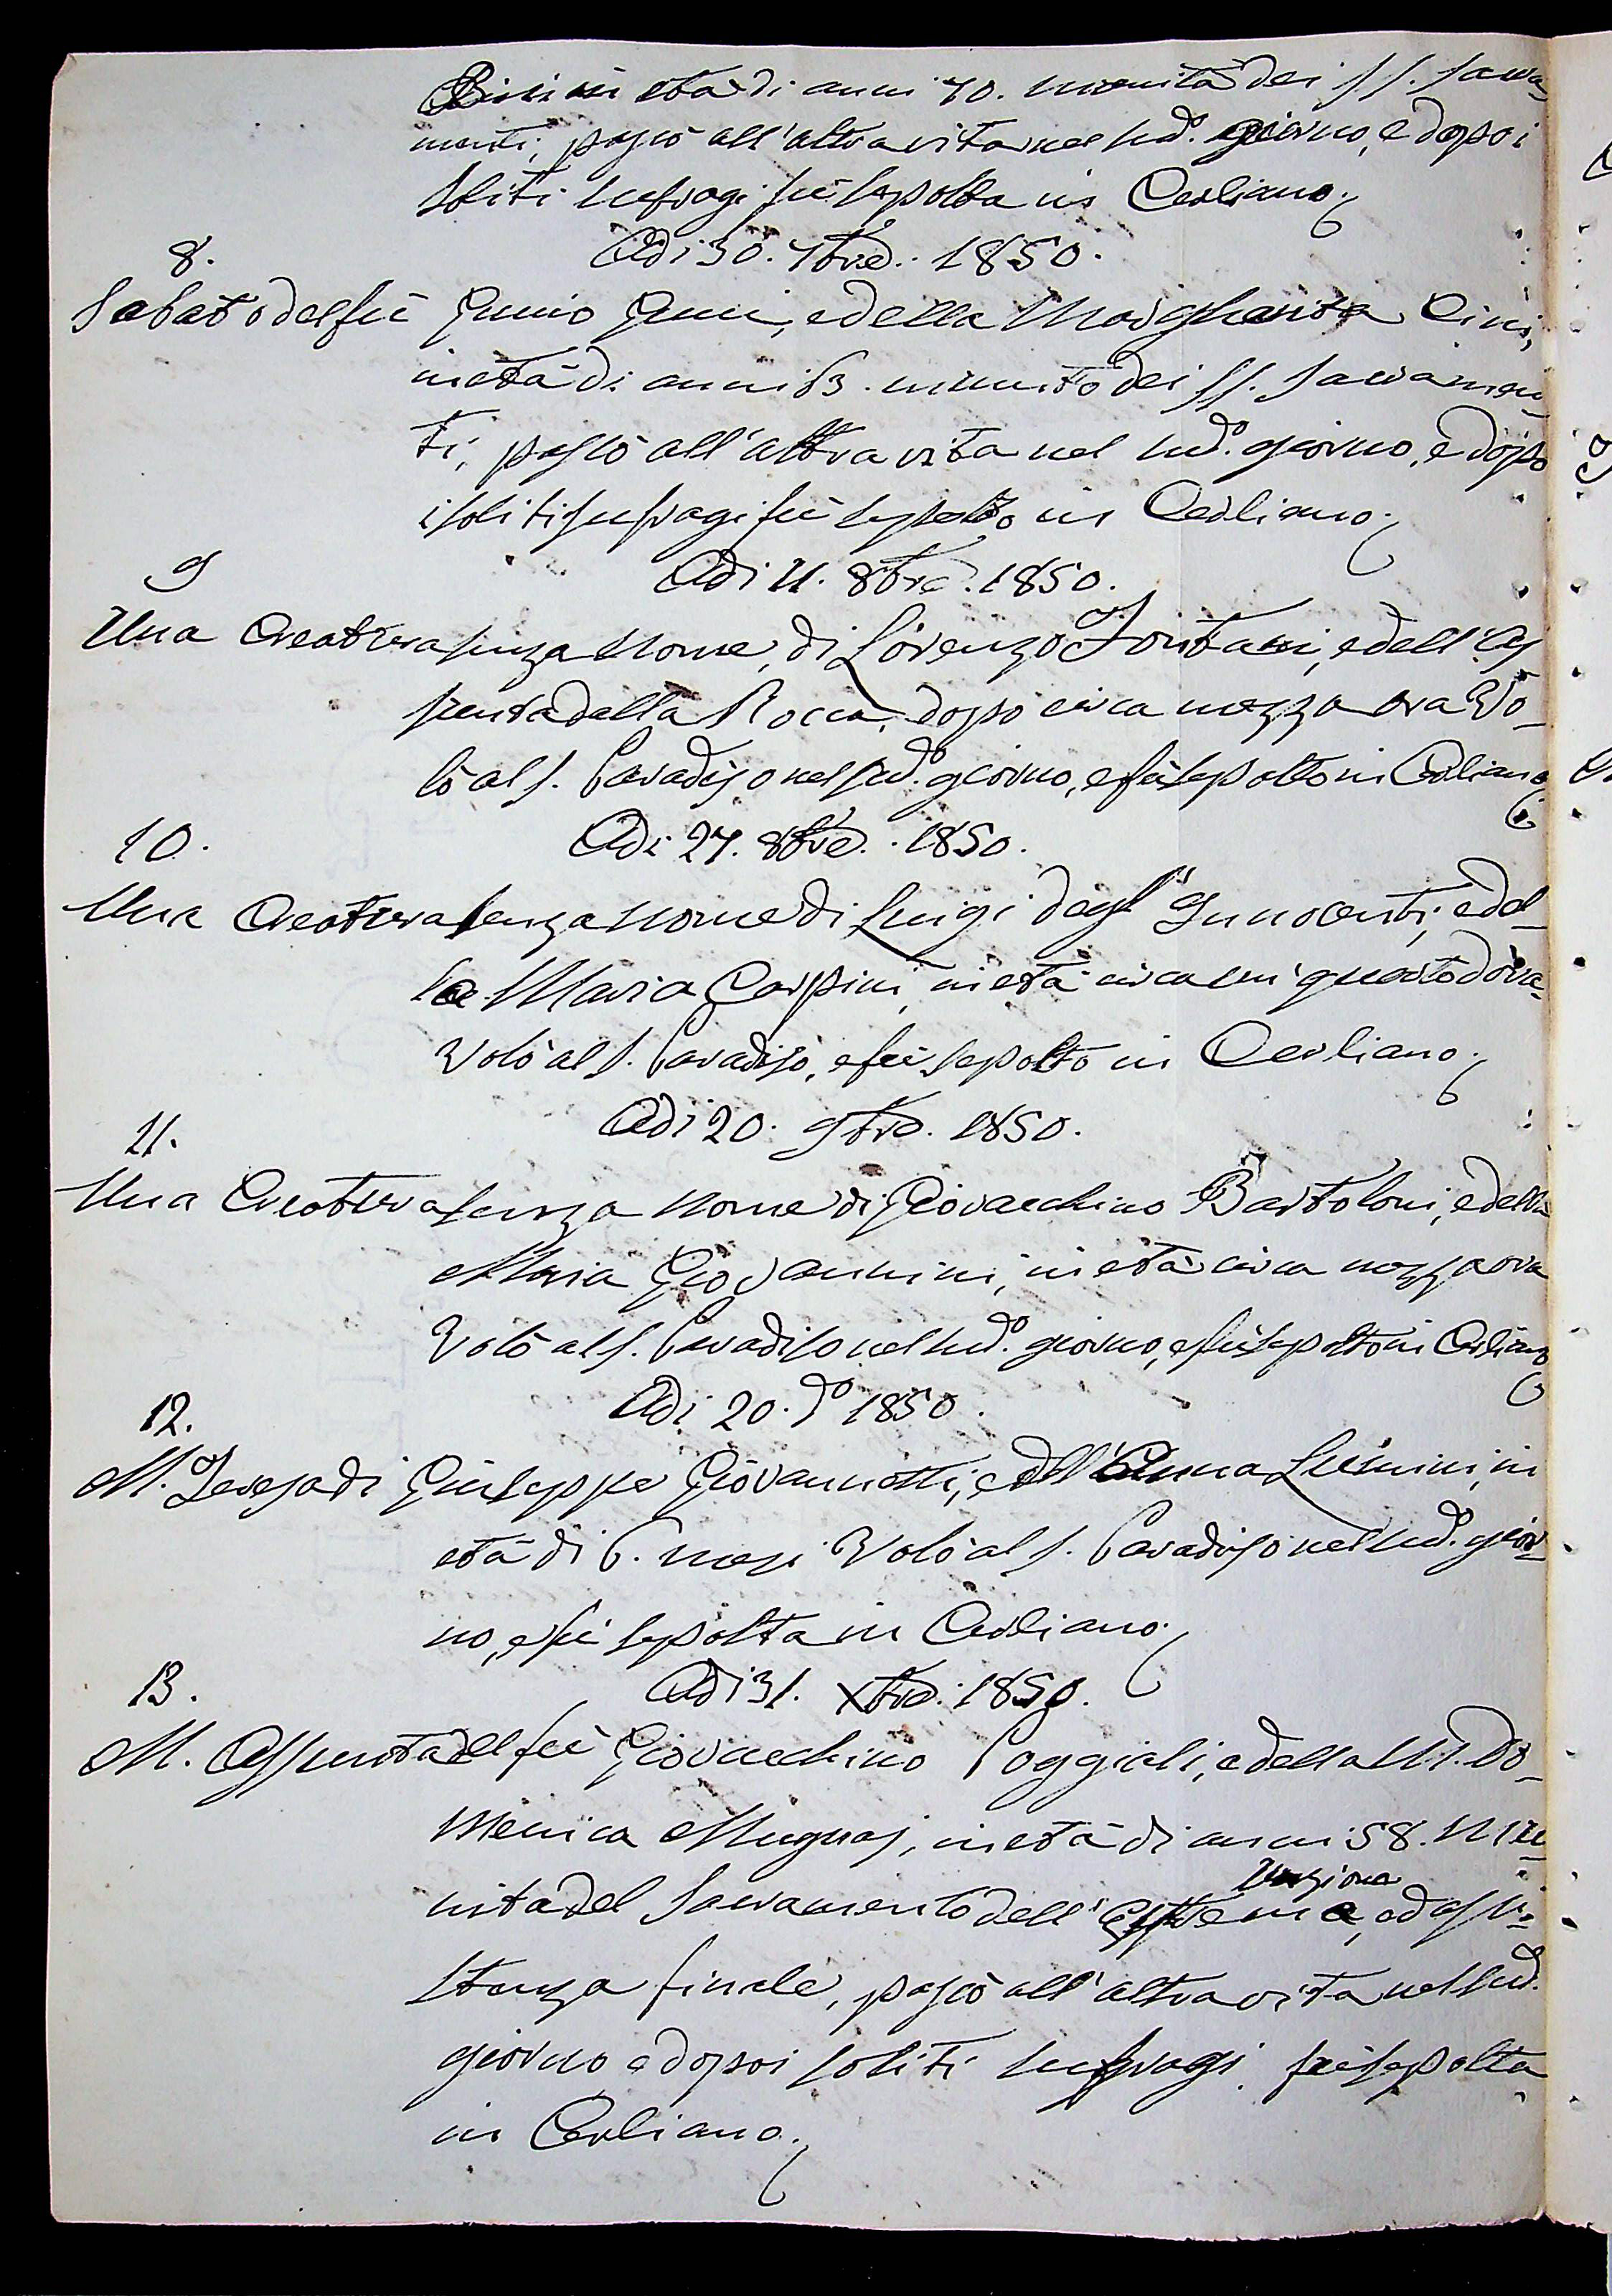 in età di anni 70. munita dei SS. Sacra-
menti, passò all'altra vita nel sud.º giorno, e dopo i
soliti sufragi fù sepolta in Cerliano.
8.
Adi 30. 7bre. 1850.
Sabato del fù Giunio Giuni, e della Margherita Cini,
in età di anni 63. munito dei SS. Sacramen-
ti, passò all'altra vita nel sud.º giorno, e dopo
i soliti sufragi fù sepolto in Cerliano.
9
Adi 11. 8bre. 1850.
Una Creatura senza Nome, di Lorenzo Fontani, e dell'As
sunta della Rocca, dopo circa mezza ora Vo-
lò al S. Paradiso nel sud.º giorno, e fù sepolto in Cerliano
10.
Adi 27. 8bre. 1850.
Una Creatura senza nome di Luigi degl'Innocenti, e del-
la Maria Carpini, in età circa un quarto d'ora
Volò al S. Paradiso, e fù sepolto in Cerliano.
11.
Adi 20. 9bre. 1850.
Una Creatura senza nome di Giovacchino Bartoloni, e della
Maria Giovannini, in età circa mezza ora
Volò al S. Paradiso nel sud.º giorno, e fù sepolto in Cerliano
12.
Adi 20. dº 1850.
M. Teresa di Giuseppe Giovannetti, e dell'Anna Lumini, in
età di 6. mesi Volò al S. Paradiso nel sud.º gior-
no, e fù sepolta in Cerliano.
13.
Adi 31. Xbre. 1850.
M. Assunta del fù Giovacchino Poggiali, e della M. Do-
menica Mugnaj, in età di anni 58. Mu-
nita del Sacramento dell'Estrema Unzione, ed assi-
stenza finale, passò all'altra vita nel sud.
giorno e dopo i soliti sufragi fù sepolta
in Cerliano.